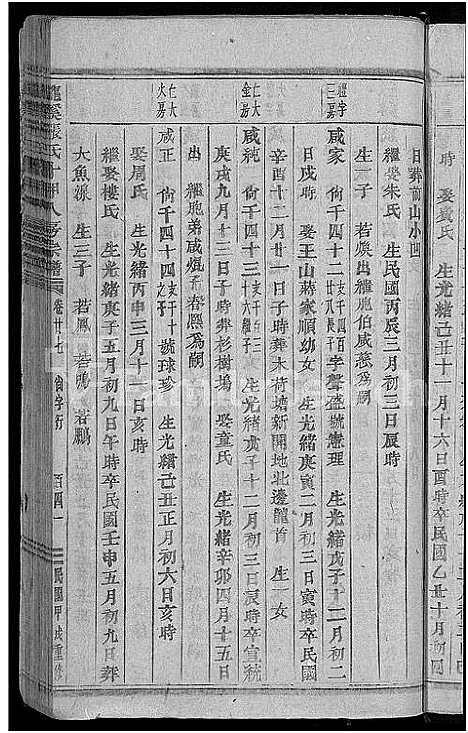 時　娶黃氏　生光緒己丑十一月十六日酉時卒民國乙丑十月初四
日葬前山小凹
繼娶朱氏　生民國丙辰三月初三日辰時
生一子　若煥出繼胞伯咸慈為嗣
咸家　尚千四十二　字聲盛號憲理　生光緒戊子十二月初二
日戌時　娶王山蔣家順幼女　生光緒庚寅二月初三日卒民國
辛酉十二月廿一日子時葬木荷塘新開地北邊龍首　生一女
仁大
金房
咸統　尚千四十三　生光緒戊子十二月初三日辰時卒宣統
庚戌九月十三日子時葬杉樹塢　娶童氏　生光緒辛卯四月十五日
出　繼胞弟咸焜子春熙為嗣
仁大
火房
咸正　尚千四十四　號球珍　生光緒己丑正月初六日亥時
娶周氏　生光緒丙申三月十一日亥時
繼娶樓氏　生光緒庚子五月初九日午時卒民國壬申五月初九日葬
大魚㳽　生三子　若鳳　若鳴　若鵬
張氏
宗譜
卷廿七　尚字行　百四一　民國甲戌重修